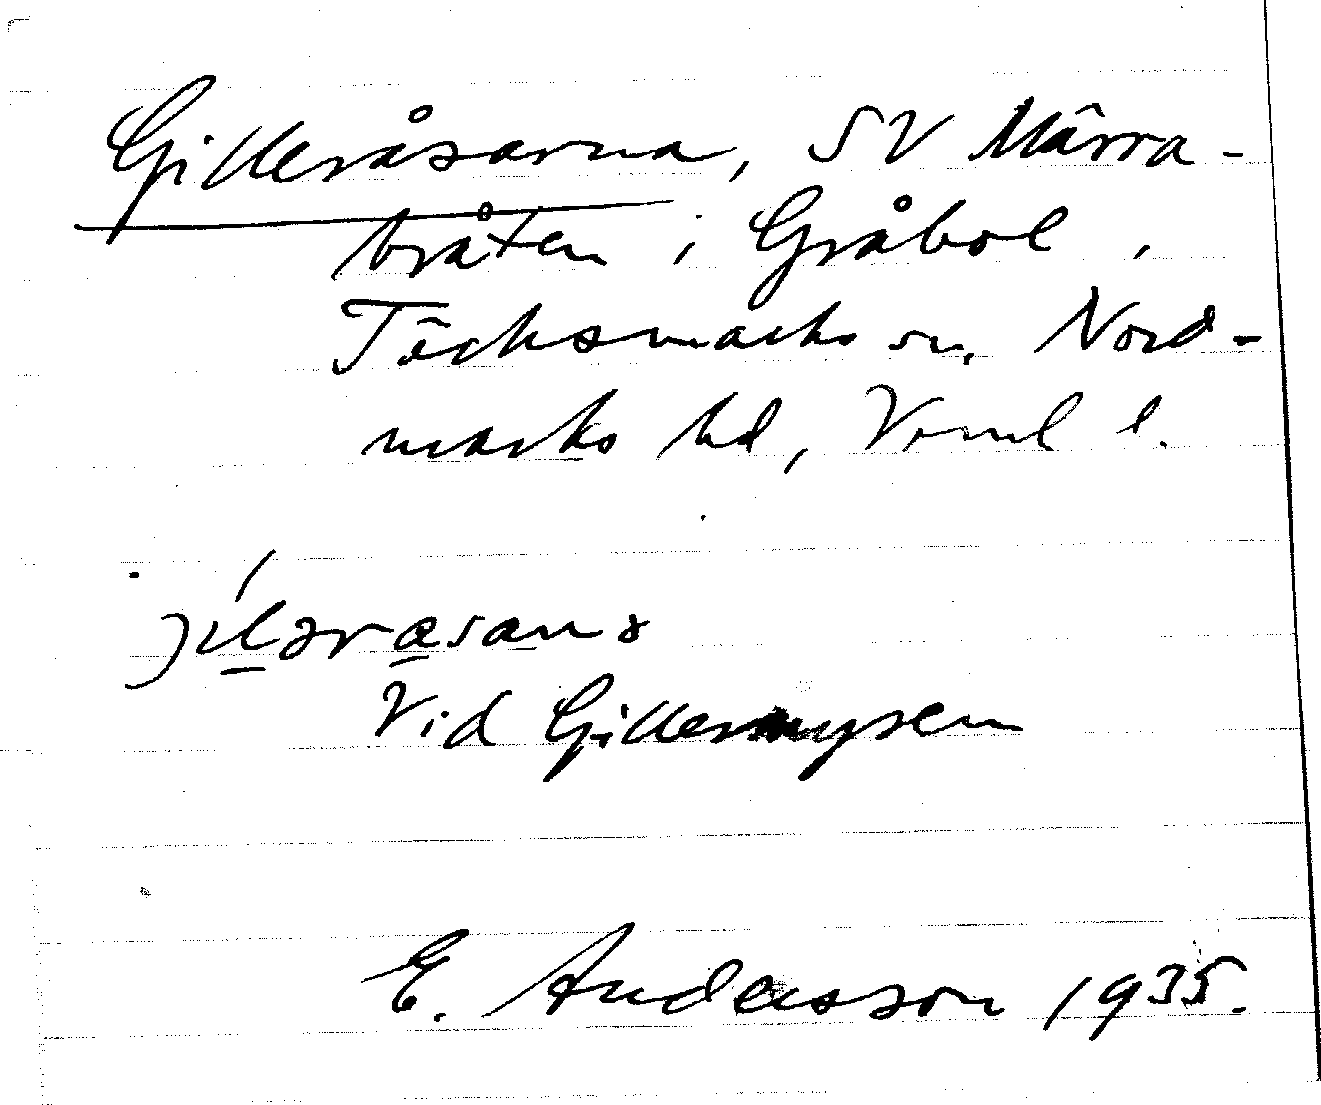 Gilleråsarna, SV Märra-
bråten i Gråbol,
Töcksmarks sn, Nord-
marks hd, Verml l.
Vid Gillermysen
E. Andersson 1935.